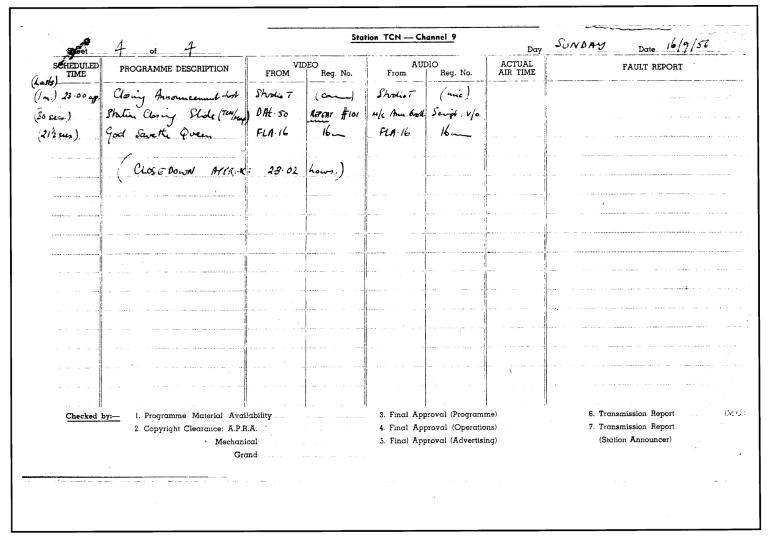 Station TCN — Channel 9
Sheet 4 of 4 Day SUNDAY Date 16/9/56
SCHEDULED TIME PROGRAMME DESCRIPTION VIDEO FROM Reg. No. AUDIO From Reg. No. ACTUAL AIR TIME FAULT REPORT
(1m.) 23.00 Closing Announcement Studio T (cam) Studio T (mic)
(30 secs.) Station Closing Slide (TCN/ DAL.50 REPEAT #101 Script. v/o
(21½ secs) God Save the Queen FLA.16 16m FLA.16 16m
(CLOSEDOWN 23.02 hours.)
Checked by:— 1. Programme Material Availability 3. Final Approval (Programme) 6. Transmission Report
2. Copyright Clearance: A.P.R.A. 4. Final Approval (Operations) 7. Transmission Report
Mechanical 5. Final Approval (Advertising) (Station Announcer)
Grand